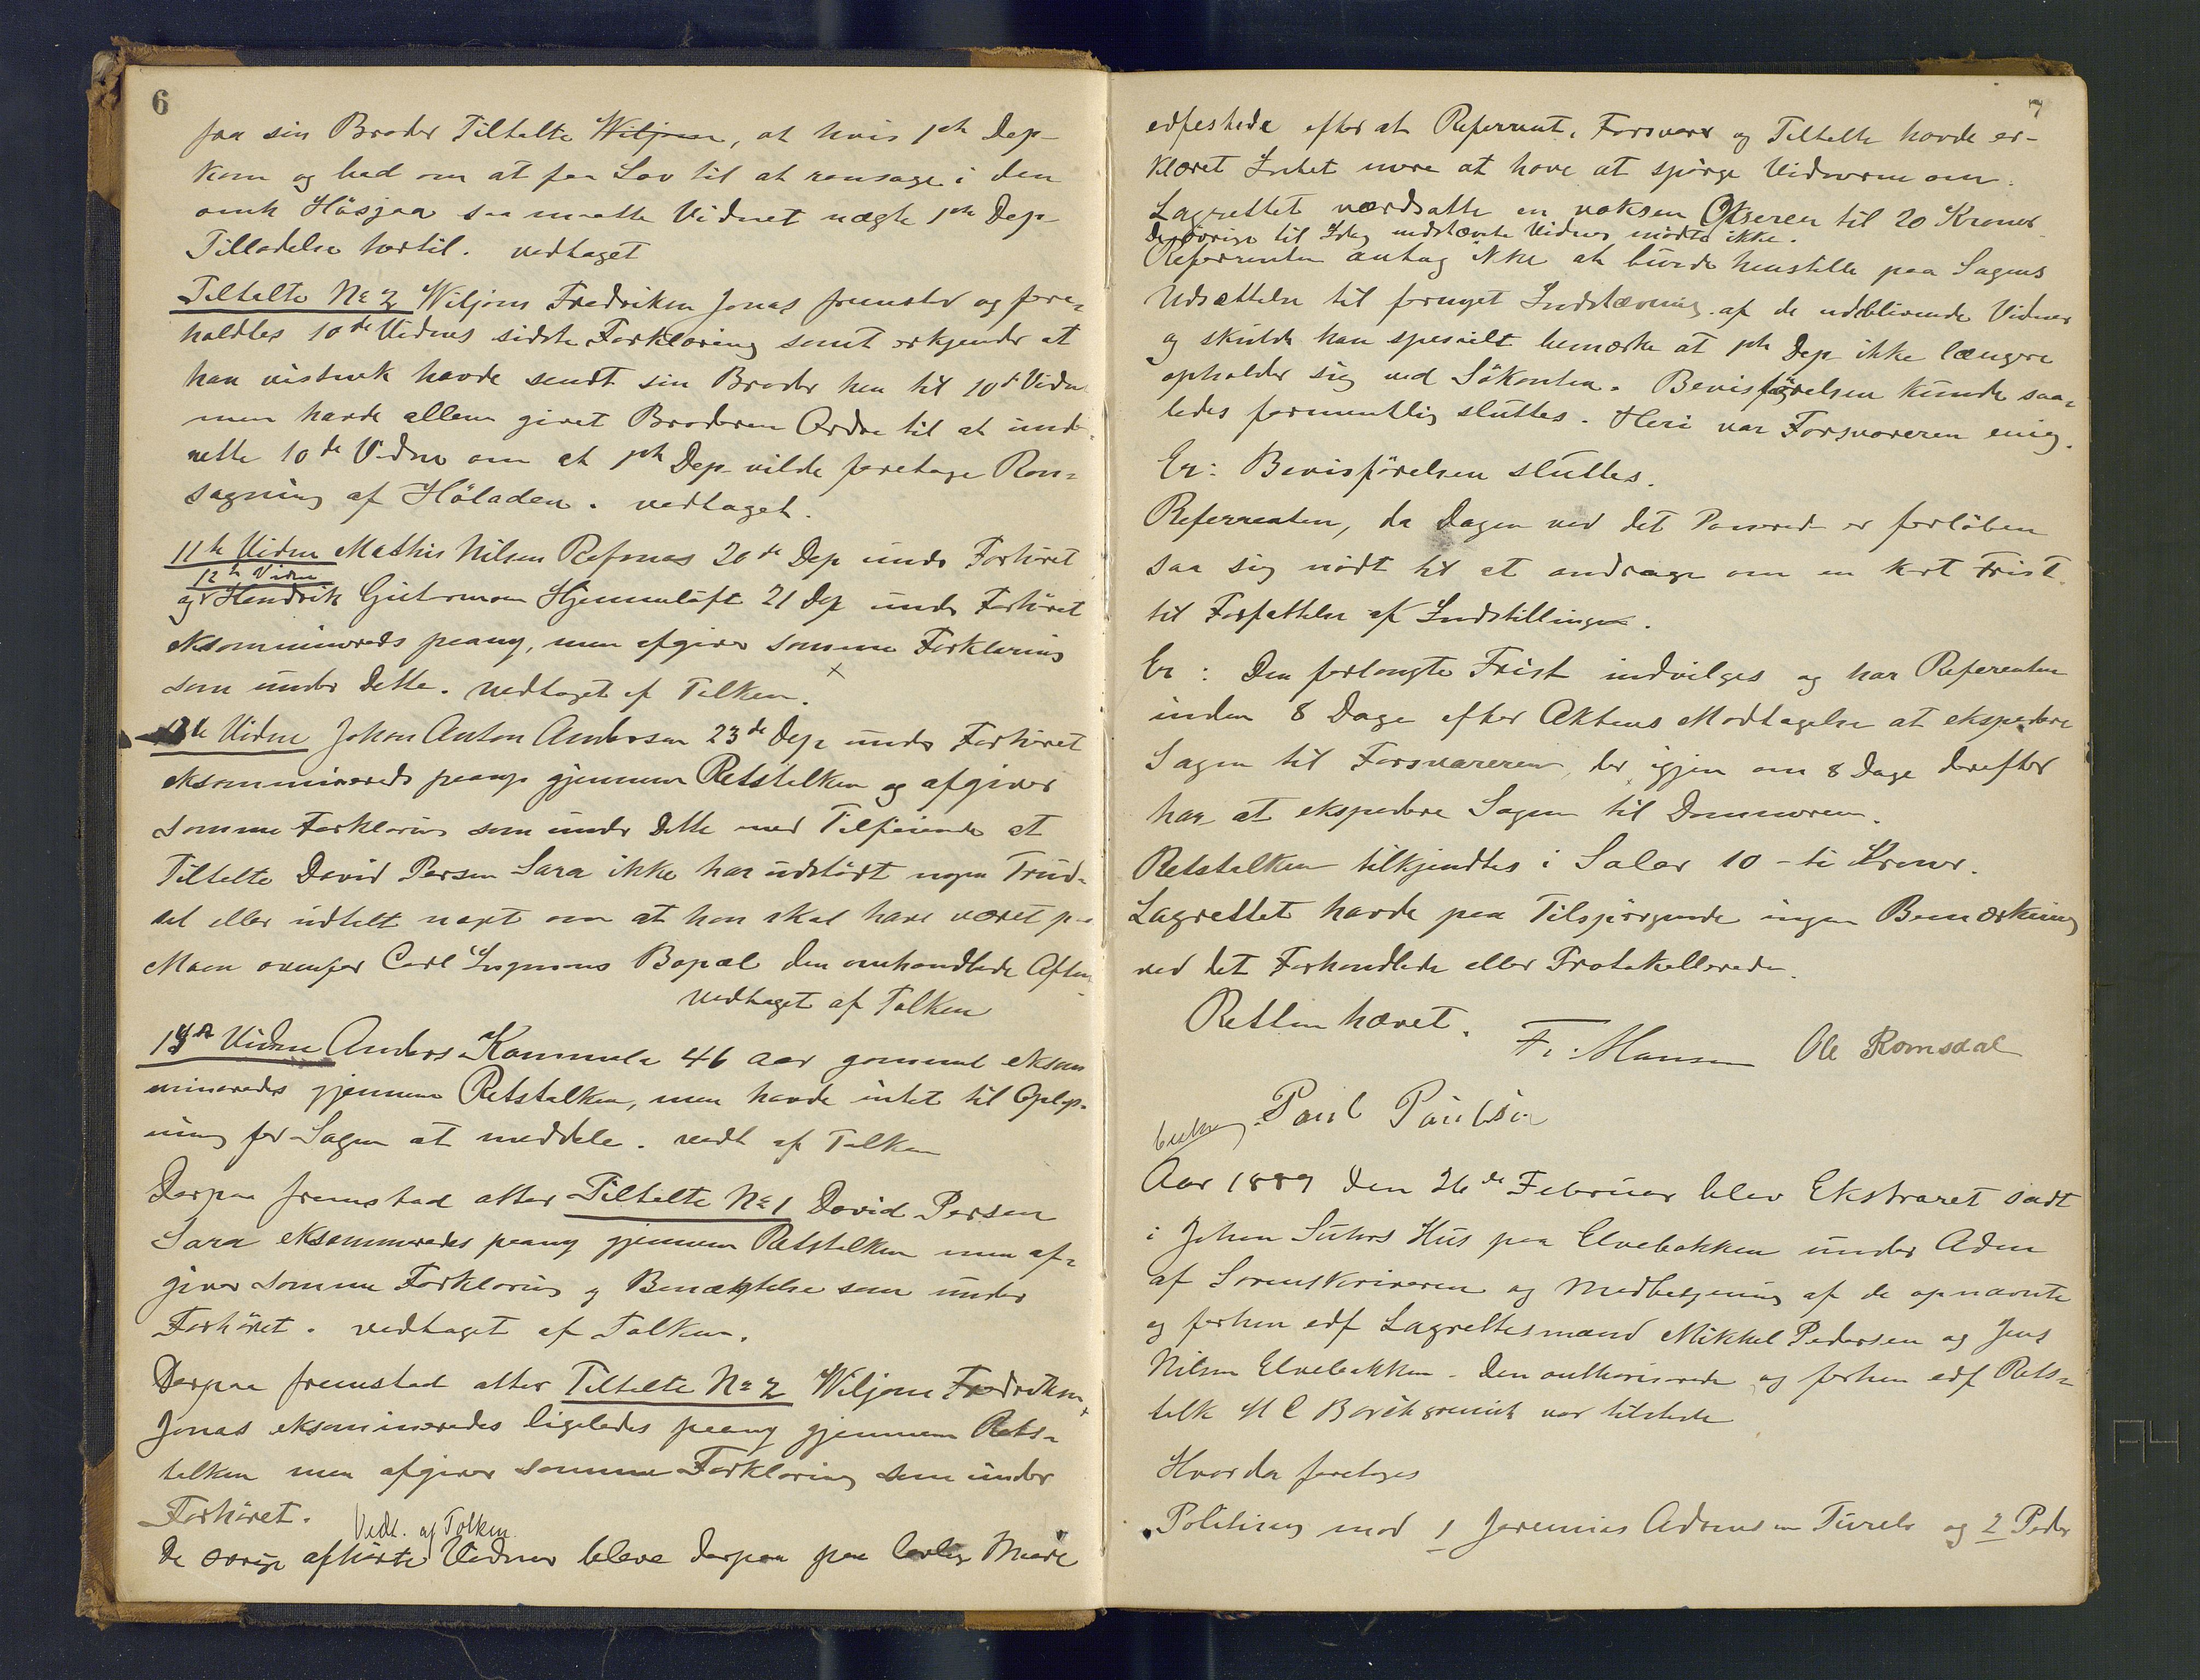 6
fra sin Broder Tiltalte Wiljam, at hvis 1ste Dep
kom og bad om at faa Lov til at ransage i den
omh Hösjaa saa maatte Vidnet nægte 1ste Dep
Tilladelse hertil. vedtaget
Tiltalte No 2 Wiljam Fredriksen Jonas fremstod og fore-
holdtes 10de Vidnes sidste Forklaring samt erkjender at
han vistnok havde sendt sin Broder hen til 10de Vidne
men havde allene givet Broderen Ordre til at under-
rette 10de Vidne om at 1ste Dep vilde foretage Ran-
sagning af Höladen. vedtaget.
11te Vidne Mathis Nilsen Refsnes 20de Dep under Forhöret
12te Vidne
og Hendrik Guttorm Hjemmeluft 21 Dep under Forhöret
eksamineredes paany, men afgiver samme Forklaring
som under dette. vedtaget af Tolken.
13de Vidne Johan Anton Andersen 23de Dep under Forhöret
eksamineredes paany gjennem Retstolken og afgiver
samme Forklaring som under dette med Tilföiende at
Tiltalte David Persen Sara ikke har udstödt nogen Trud-
sel eller udtalt noget om at han skal have været paa
Moen ovenfor Carl Ingmans Bopæl den omhandlede Aften
vedtaget af Tolken
14de Vidne Anders Kammula 46 aar gammel eksam
mineredes gjennem Retstolken, men havde intet til Oplys-
ning for Sagen at meddele. vedt af Tolken
Derpaa fremstod atter Tiltalte No 1 David Persen
Sara eksamineredes paany gjennem Retstolken men af-
giver samme Forklaring og Benægtelse som under
Forhöret. vedtaget af Tolken.
Derpaa fremstod atter Tiltalte No 2 Wiljam Fredriksen
Jonas eksamineredes ligeledes paany gjennem Rets-
tolken men afgiver samme Forklaring som under
Forhöret. Vedt. af Tolken.
De övrige afhörte Vidner bleve derpaa paa lovlig Maade
7
edfestede efter at Referent, Forsvarer og Tiltalte havde er-
klæret Intet mere at have at spörge Vidnerne om.
Lagrettet værdsatte en voksen Okseren til 20 Kroner
De övrige til Idag indstævnte Vidner mödte ikke.
Referenten antog ikke at burde henstille paa Sagens
Udsættelse til fornyet Indstævning af de udeblivende Vidner
og skulde han spesielt bemærke at 1ste Dep ikke længere
opholder sig ved Sökonten. Bevisförelsen kunde saa-
ledes formentlig sluttes. Heri var Forsvareren enig.
Er: Bevisförelsen sluttes.
Referenten, da Dagen ved det Passerede er forlöben
saa sig nödt til at andrage om en kort Frist
til Forfattelse af Indstillingen.
Er: Den forlangte Frist indvilges og har Referenten
inden 8 Dage efter Aktens Modtagelse at ekspedere
Sagen til Forsvareren, der igjen om 8 Dage derefter
har at ekspedere Sagen til Dommeren.
Retstolken tilkjendtes i Salær 10 - ti Kroner.
Lagrettet havde paa Tilspörgende ingen Bemærkning
ved det Forhandlede eller Protokollerede.
Retten hævet.
Fr. Hansen Ole Romsdal
Paul Paulsen
Aar 1889 den 26de Februar blev Ekstraret sadt
i Johan Suhrs Hus paa Elvebakken under Adm
af Sorenskriveren og Medbetjening af de opnævnte
og forhen edf Lagrettesmænd Mikkel Pedersen og Jens
Nilsen Elvebakken. Den authoriserede og forhen edf Rets-
tolk H C Borchgrevink var tilstede
Hvorda foretoges
Politisag mod 1 Jeremias Adamsen Turels og 2 Peder